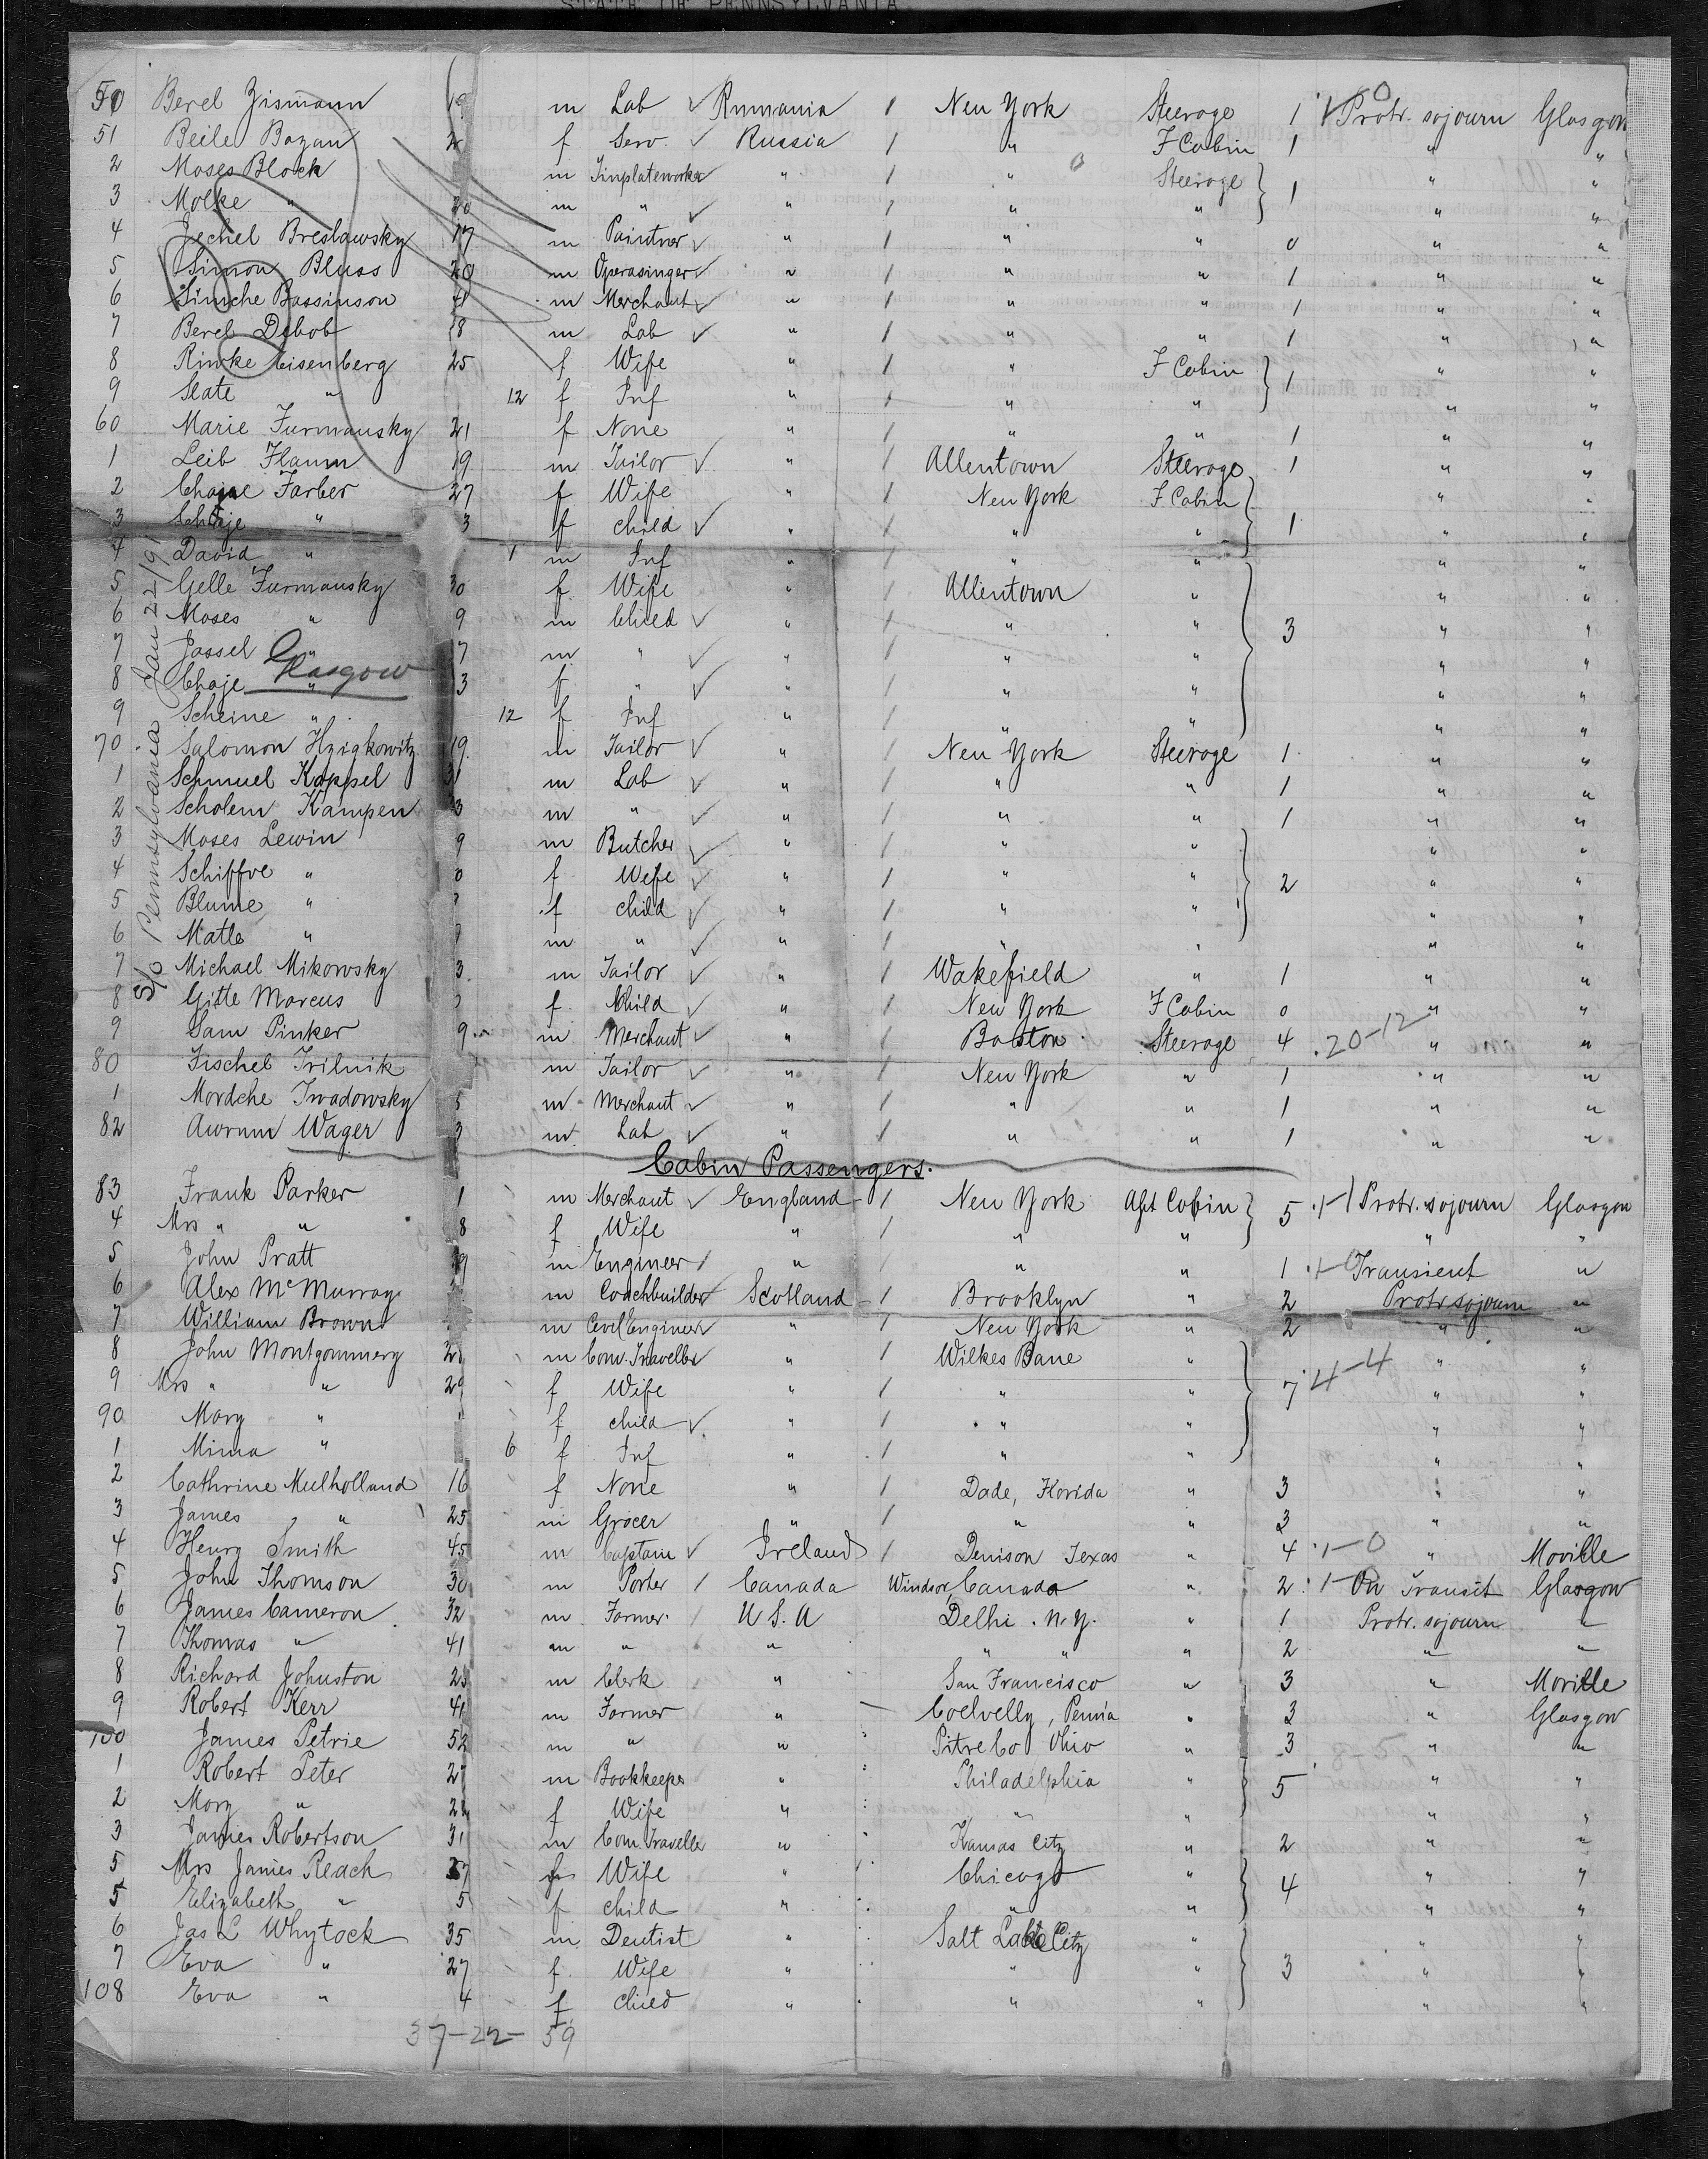 STATE OF PENNSYLVANIA.
50 Berel Zismann 19 m Lab ✓ Rumania 1 New York Steerage 1 Protr. sojourn Glasgow
51 Beile Bozan f Serv. ✓ Russia 1 " F Cabin 1 " "
2 Moses Block m Tinplateworker ✓ " 1 " Steerage } 1 " "
3 Molke " 20 m " ✓ " 1 " " " "
4 Jechel Breslawsky 17 m Paintner ✓ " 1 " " 0 " "
5 Simon Bluss 20 m Operasinger ✓ " 1 " " 1 " "
6 Simche Bassinson 41 m Merchant ✓ " 1 " " 1 " "
7 Berel Debob 18 m Lab ✓ " 1 " " 1 " "
8 Rinke Eisenberg 25 f Wife " 1 " F Cabin } 1 " "
9 Slate " 12 f Inf " 1 " " " "
60 Marie Furmansky 21 f None " 1 " " 1 " "
1 Leib Flaum 19 m Tailor ✓ " 1 Allentown Steerage 1 " "
2 Farber 27 f Wife " 1 New York F Cabin } " "
3 " 3 f child ✓ " 1 " " 1 " "
4 David " 1 m Inf " 1 " " " "
5 Gelle Furmansky 30 f Wife " 1 Allentown " } " "
6 Moses " 9 m Child ✓ " 1 " " 3 " "
7 Jossel " 7 m " ✓ " 1 " " " "
8 Chaje " 3 f " ✓ " 1 " " " "
9 Scheine " 12 f Inf " 1 " " " "
70 Salomon Hzigkowitz 19 m Tailor ✓ " 1 New York Steerage 1 " "
1 Schmuel Kappel 31 m Lab ✓ " 1 " " 1 " "
2 Scholem Kampen 3 m " ✓ " 1 " " 1 " "
3 Moses Lewin 9 m Butcher ✓ " 1 " " } " "
4 Schiffve " 0 f Wife ✓ " 1 " " 2 " "
5 Blume " f child ✓ " 1 " " " "
6 Matle " m " ✓ " 1 " " " "
7 Michael Mikowsky 3 m Tailor ✓ " 1 Wakefield " 1 " "
8 Gitte Marcus f Child ✓ " 1 New York F Cabin 0 " "
9 Sam Pinker 9 m Merchant ✓ " 1 Boston Steerage 4 20-12 " "
80 Fischel Trilnik m Tailor ✓ " 1 New York " 1 " "
1 Mordche Iwadowsky 5 m Merchant ✓ " 1 " " 1 " "
82 Awrum Wager 3 m Lab ✓ " 1 " " 1 " "
S/S Pennsylvania Jan 22/91
Glasgow
Cabin Passengers.
83 Frank Parker 1 m Merchant ✓ England 1 New York Aft Cabin } 5 Protr. sojourn Glasgow
4 Mrs " " 8 f Wife " 1 " " " "
5 John Pratt 39 m Engineer / " " " 1 Transient "
6 Alex McMurray m Coachbuilder ✓ Scotland 1 Brooklyn " 2 Protr. sojourn "
7 William Brown m Civil Engineer ✓ " 1 New York " 2 " "
8 John Montgommery 2 m Com. Traveller ✓ " 1 Wilkes Bane " } " "
9 Mrs " " 29 f Wife " 1 " " 7 4-4 " "
90 Mary " f child ✓ " 1 " " " "
1 Mima " 6 f Inf " 1 " " " "
2 Cathrine Mulholland 16 f None " 1 Dade, Florida " 3 " "
3 James " 25 m Grocer " 1 " " 3 " "
4 Henry Smith 45 m Captain ✓ Ireland 1 Denison Texas " 4 1-0 " Moville
5 John Thomson 30 m Porter / Canada Windsor, Canada " 2 On Transit Glasgow
6 James Cameron 32 m Farmer / U.S.A Delhi. N.Y. " 1 Protr. sojourn "
7 Thomas " 41 m " " " " " 2 " "
8 Richard Johnston 23 m Clerk " San Francisco " 3 " Moville
9 Robert Kerr 41 m Farmer " Coelvelly, Penn'a " 3 " Glasgow
100 James Petrie 52 m " " Pitre Co Ohio " 3 " "
1 Robert Peter 27 m Bookkeeper " Philadelphia " } 5 " "
2 Mary " 22 f Wife " " " " "
3 James Robertson 31 m Com. Traveller " Kansas City " 2 " "
5 Mrs James Reach 27 f Wife " Chicago " } 4 " "
5 Elizabeth " 5 f child " " " " "
6 Jas L Whytock 35 m Dentist " Salt Lake City " } " "
7 Eva " 27 f Wife " " " 3 " "
108 Eva " 4 f child " " " " "
37-22-59